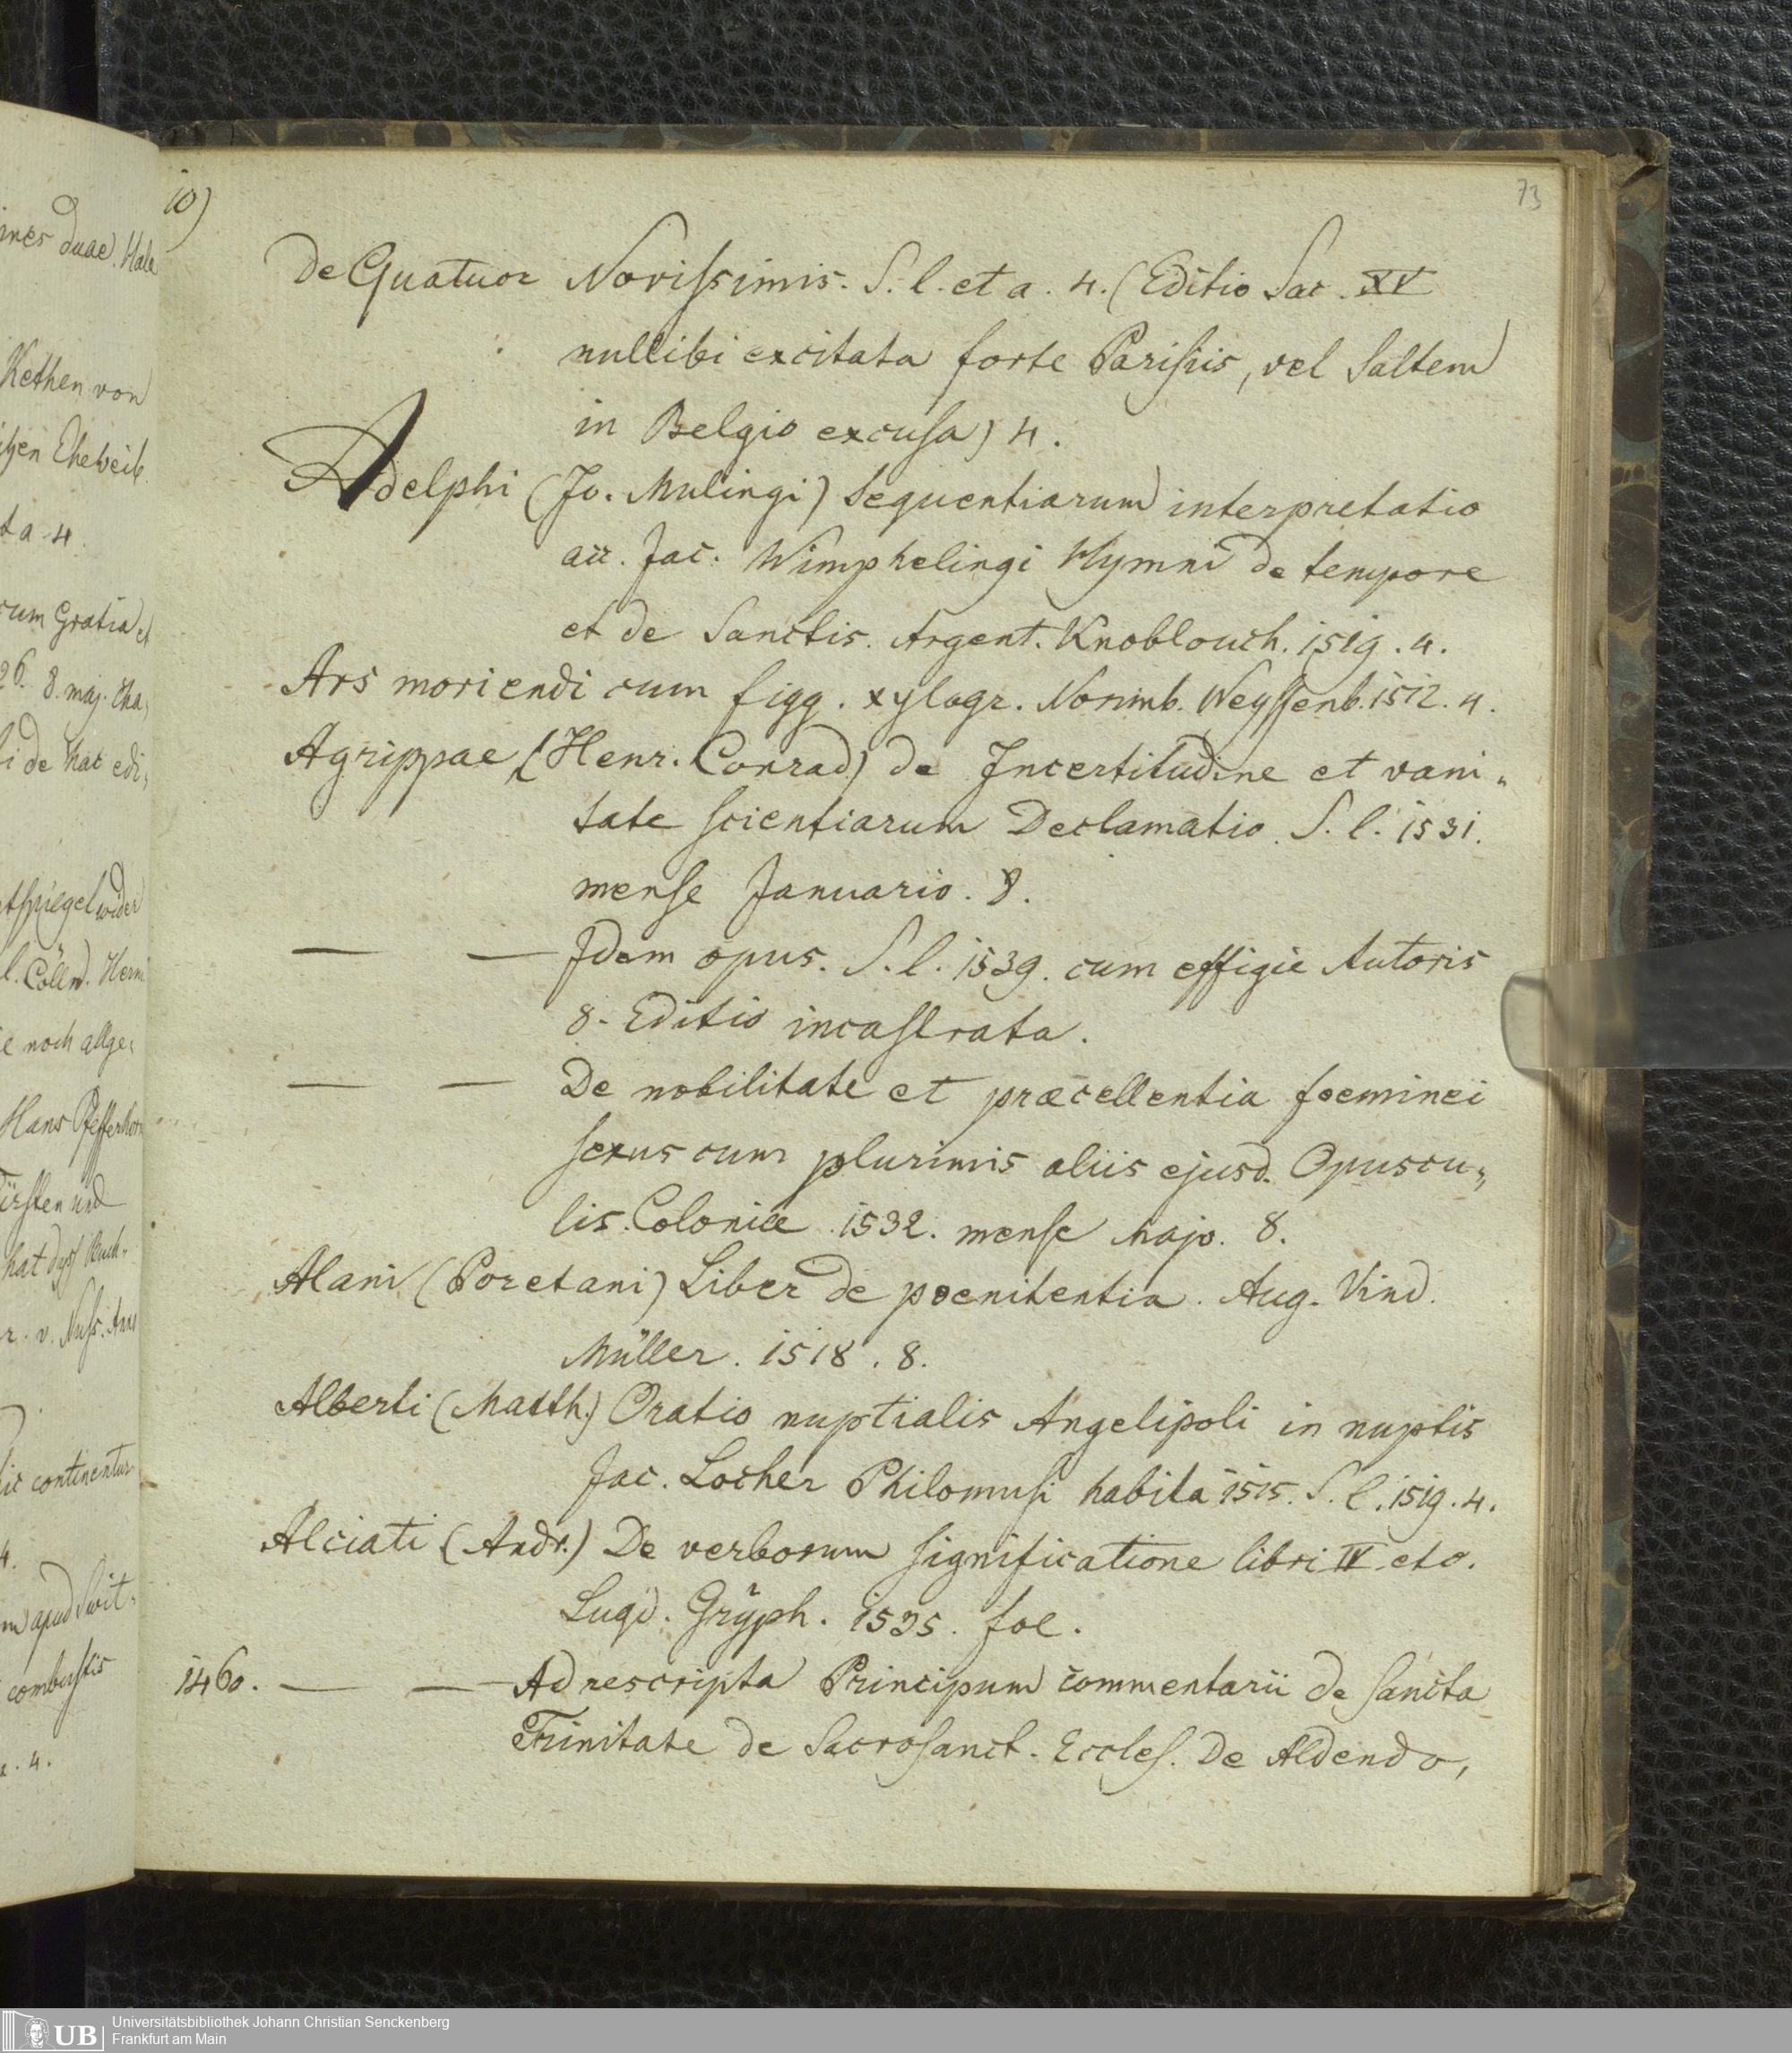 10)
73
De Quatuor Novissimis. S. l. et a. 4. (Editio Sac. XV
nullibi excitata forte Parisiis, vel saltem
in Belgio excusa) 4.
Adelphi (Jo. Mulingi) sequentiarum interpretatio
acc. Jac. Wimphelingi Hymni de tempore
et de Sanctis. Argent. Knoblouch. 1519. 4.
Ars moriendi cum figg. xylogr. Norimb. Weyssenb. 1512. 4.
Agrippae (Henr. Conrad) de Incertitudine et vani-
tate scientiarum Declamatio. S. l. 1531.
mense Januario. 8.
— — Idem opus. S. l. 1539. cum effigie Autoris
8. Editio incastrata.
— — De nobilitate et præcellentia foeminei
sexus cum plurimis aliis ejusd. Opuscu-
lis. Coloniæ 1532. mense Majo. 8.
Alani (Poretani) Liber de poenitentia. Aug. Vind.
Müller. 1518. 8.
Alberti (Matth.) Oratio nuptialis Angelipoli in nuptis
Jac. Locher Philomusi habita 1515. S. l. 1519. 4.
Alciati (Andr.) De verborum significatione libri IV etc.
Lugd. Gryph. 1535. fol.
1460. — — Ad rescripta Principum commentarii de sancta
Trinitate de Sacrosanct. Eccles. De Aldendo,
ines duae. Hale
Kethen von
Eheweib.
t a. 4.
cum Gratia et
26. 8. maj.
i de hac edi,
wider
l. Cölln. Herm
e noch allge,
Hans Pfefferkorn
ürsten und
hat dyß Buch.
continentur
4.
m apud
combustis
a. 4.
UB
Universitätsbibliothek Johann Christian Senckenberg
Frankfurt am Main